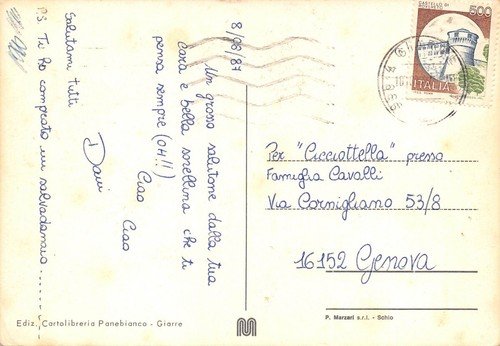 8/08/87
Un grosso salutone dalla tua
cara e bella sorellina che ti
pensa sempre (OH!!)
Ciao
Ciao
Salutami tutti
P.S. Ti ho comprato un salvadanaio
500
ITALIA
Per "Cicciottella" presso
Famiglia Cavalli
Via Cornigliano 53/8
16152 Genova
Ediz. Cartolibreria Panebianco - Giarre
P. Marzari s.r.l. - Schio